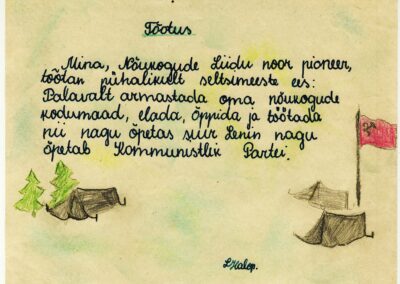 Tõotus
Mina, Nõukogude Liidu noor pioneer,
tõotan pühalikult seltsimeeste ees:
Palavalt armastada oma nõukogude
kodumaad, elada, õppida ja töötada
nii nagu õpetas suur Lenin nagu
õpetab Kommunistlik Partei.